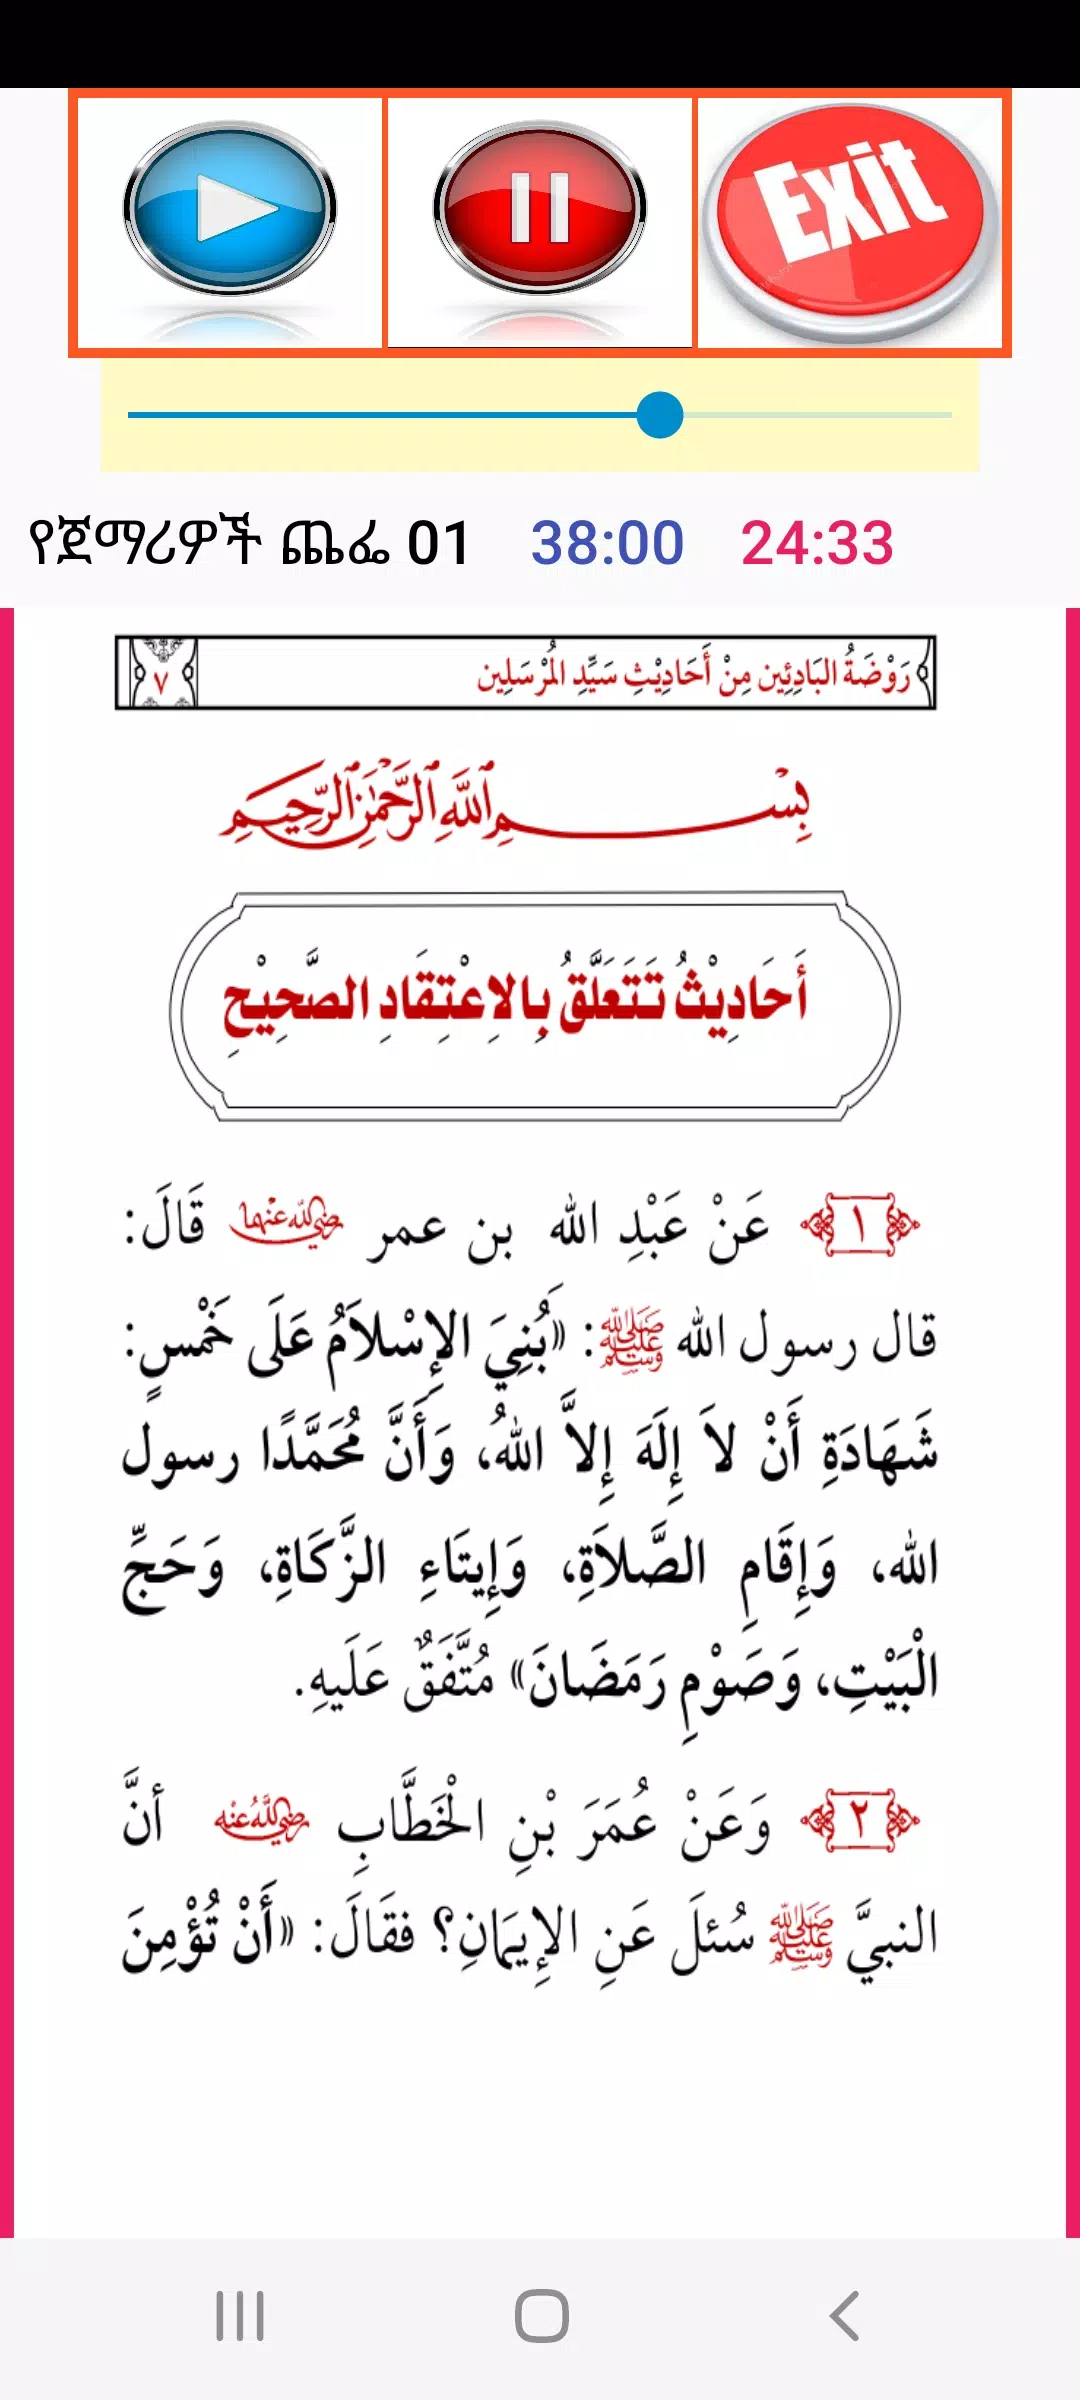 Exit
የጀማሪዎች ጨፌ 01 38:00 24:33
رَوْضَةُ البَادِئِين مِنْ أَحَادِيْثِ سَيِّدِ المُرْسَلِين ٧
بِسْمِ ٱللَّهِ ٱلرَّحْمَٰنِ ٱلرَّحِيمِ
أَحَادِيْثُ تَتَعَلَّقُ بِالاِعْتِقَادِ الصَّحِيْحِ
١ عَنْ عَبْدِ الله بن عمر رضي الله عنهما قَالَ:
قال رسول الله ﷺ: «بُنِيَ الإِسْلاَمُ عَلَى خَمْسٍ:
شَهَادَةِ أَنْ لاَ إِلَهَ إِلاَّ اللهُ، وَأَنَّ مُحَمَّدًا رسول
الله، وَإِقَامِ الصَّلاَةِ، وَإِيتَاءِ الزَّكَاةِ، وَحَجِّ
الْبَيْتِ، وَصَوْمِ رَمَضَانَ» مُتَّفَقٌ عَلَيهِ.
٢ وَعَنْ عُمَرَ بْنِ الْخَطَّابِ رضي الله عنه أنَّ
النبيَّ ﷺ سُئلَ عَنِ الإِيمَانِ؟ فقَالَ: «أَنْ تُؤْمِنَ